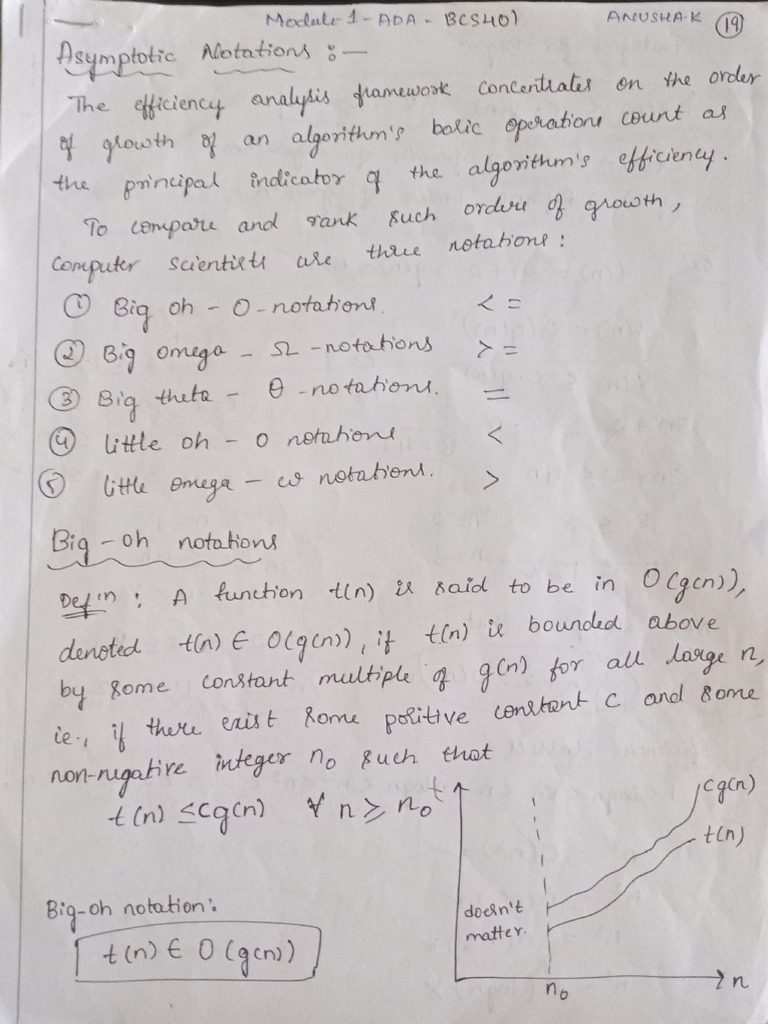 Module-1-ADA-BCS401 ANUSHA-K 19
Asymptotic Notations :-
The efficiency analysis framework concentrates on the order
of growth of an algorithm's basic operations count as
the principal indicator of the algorithm's efficiency.
To compare and rank such orders of growth,
computer scientists use three notations:
① Big oh - O-notations. <=
② Big omega - Ω -notations >=
③ Big theta - θ -notations. =
④ little oh - o notations <
⑤ little omega - ω notations. >
Big-oh notations
Defⁿ: A function t(n) is said to be in O(g(n)),
denoted t(n) ∈ O(g(n)), if t(n) is bounded above
by some constant multiple of g(n) for all large n,
ie., if there exist some positive constant c and some
non-negative integer n₀ such that
t(n) ≤ cg(n) ∀ n ≥ n₀
t
cg(n)
t(n)
doesn't
matter.
n₀
n
Big-oh notation:
t(n) ∈ O(g(n))